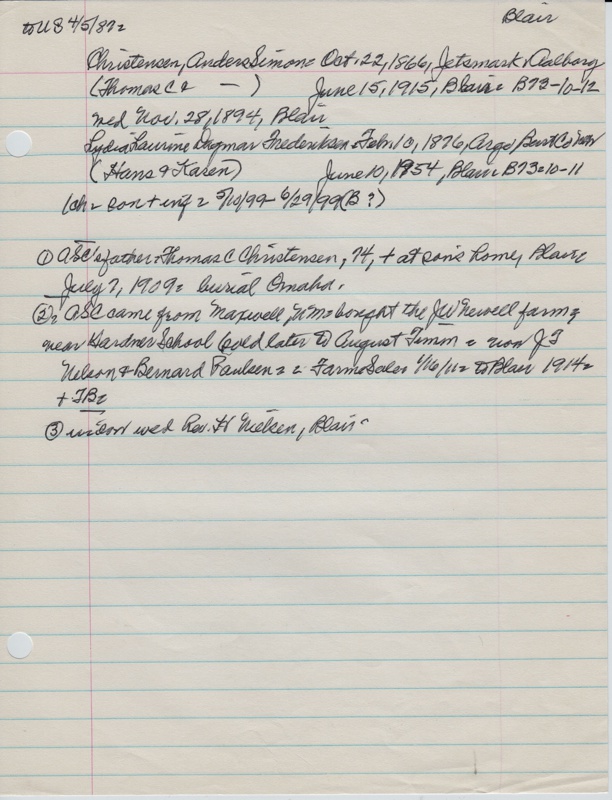 to US 4/5/87=
Blair
Christensen, Anders Simon= Oct. 22, 1866, Jetsmark, Aalborg
(Thomas C & — ) June 15, 1915, Blair= B73-10-12
wed Nov. 28, 1894, Blair
Lydia Laurine Dagmar Frederiksen= Feb. 10, 1876, Argo, Burt Co
(Hans & Karen) June 10, 1954, Blair B73=10-11
1ch= son + inf= 5/10/99- 6/29/99 (B?)
① ASC's father= Thomas C Christensen, 74, + at son's home, Blair,
July 7, 1909= burial Omaha.
②= ASC came from Maxwell, = bought the JW Newell farm
near Gardner School (sold later to August Timm = now J J
Nelson & Bernard Paulsen = = Farm Sales 1/16/11= to Blair 1914=
+ TB=
③ widow wed Rev. H Nielsen, Blair=